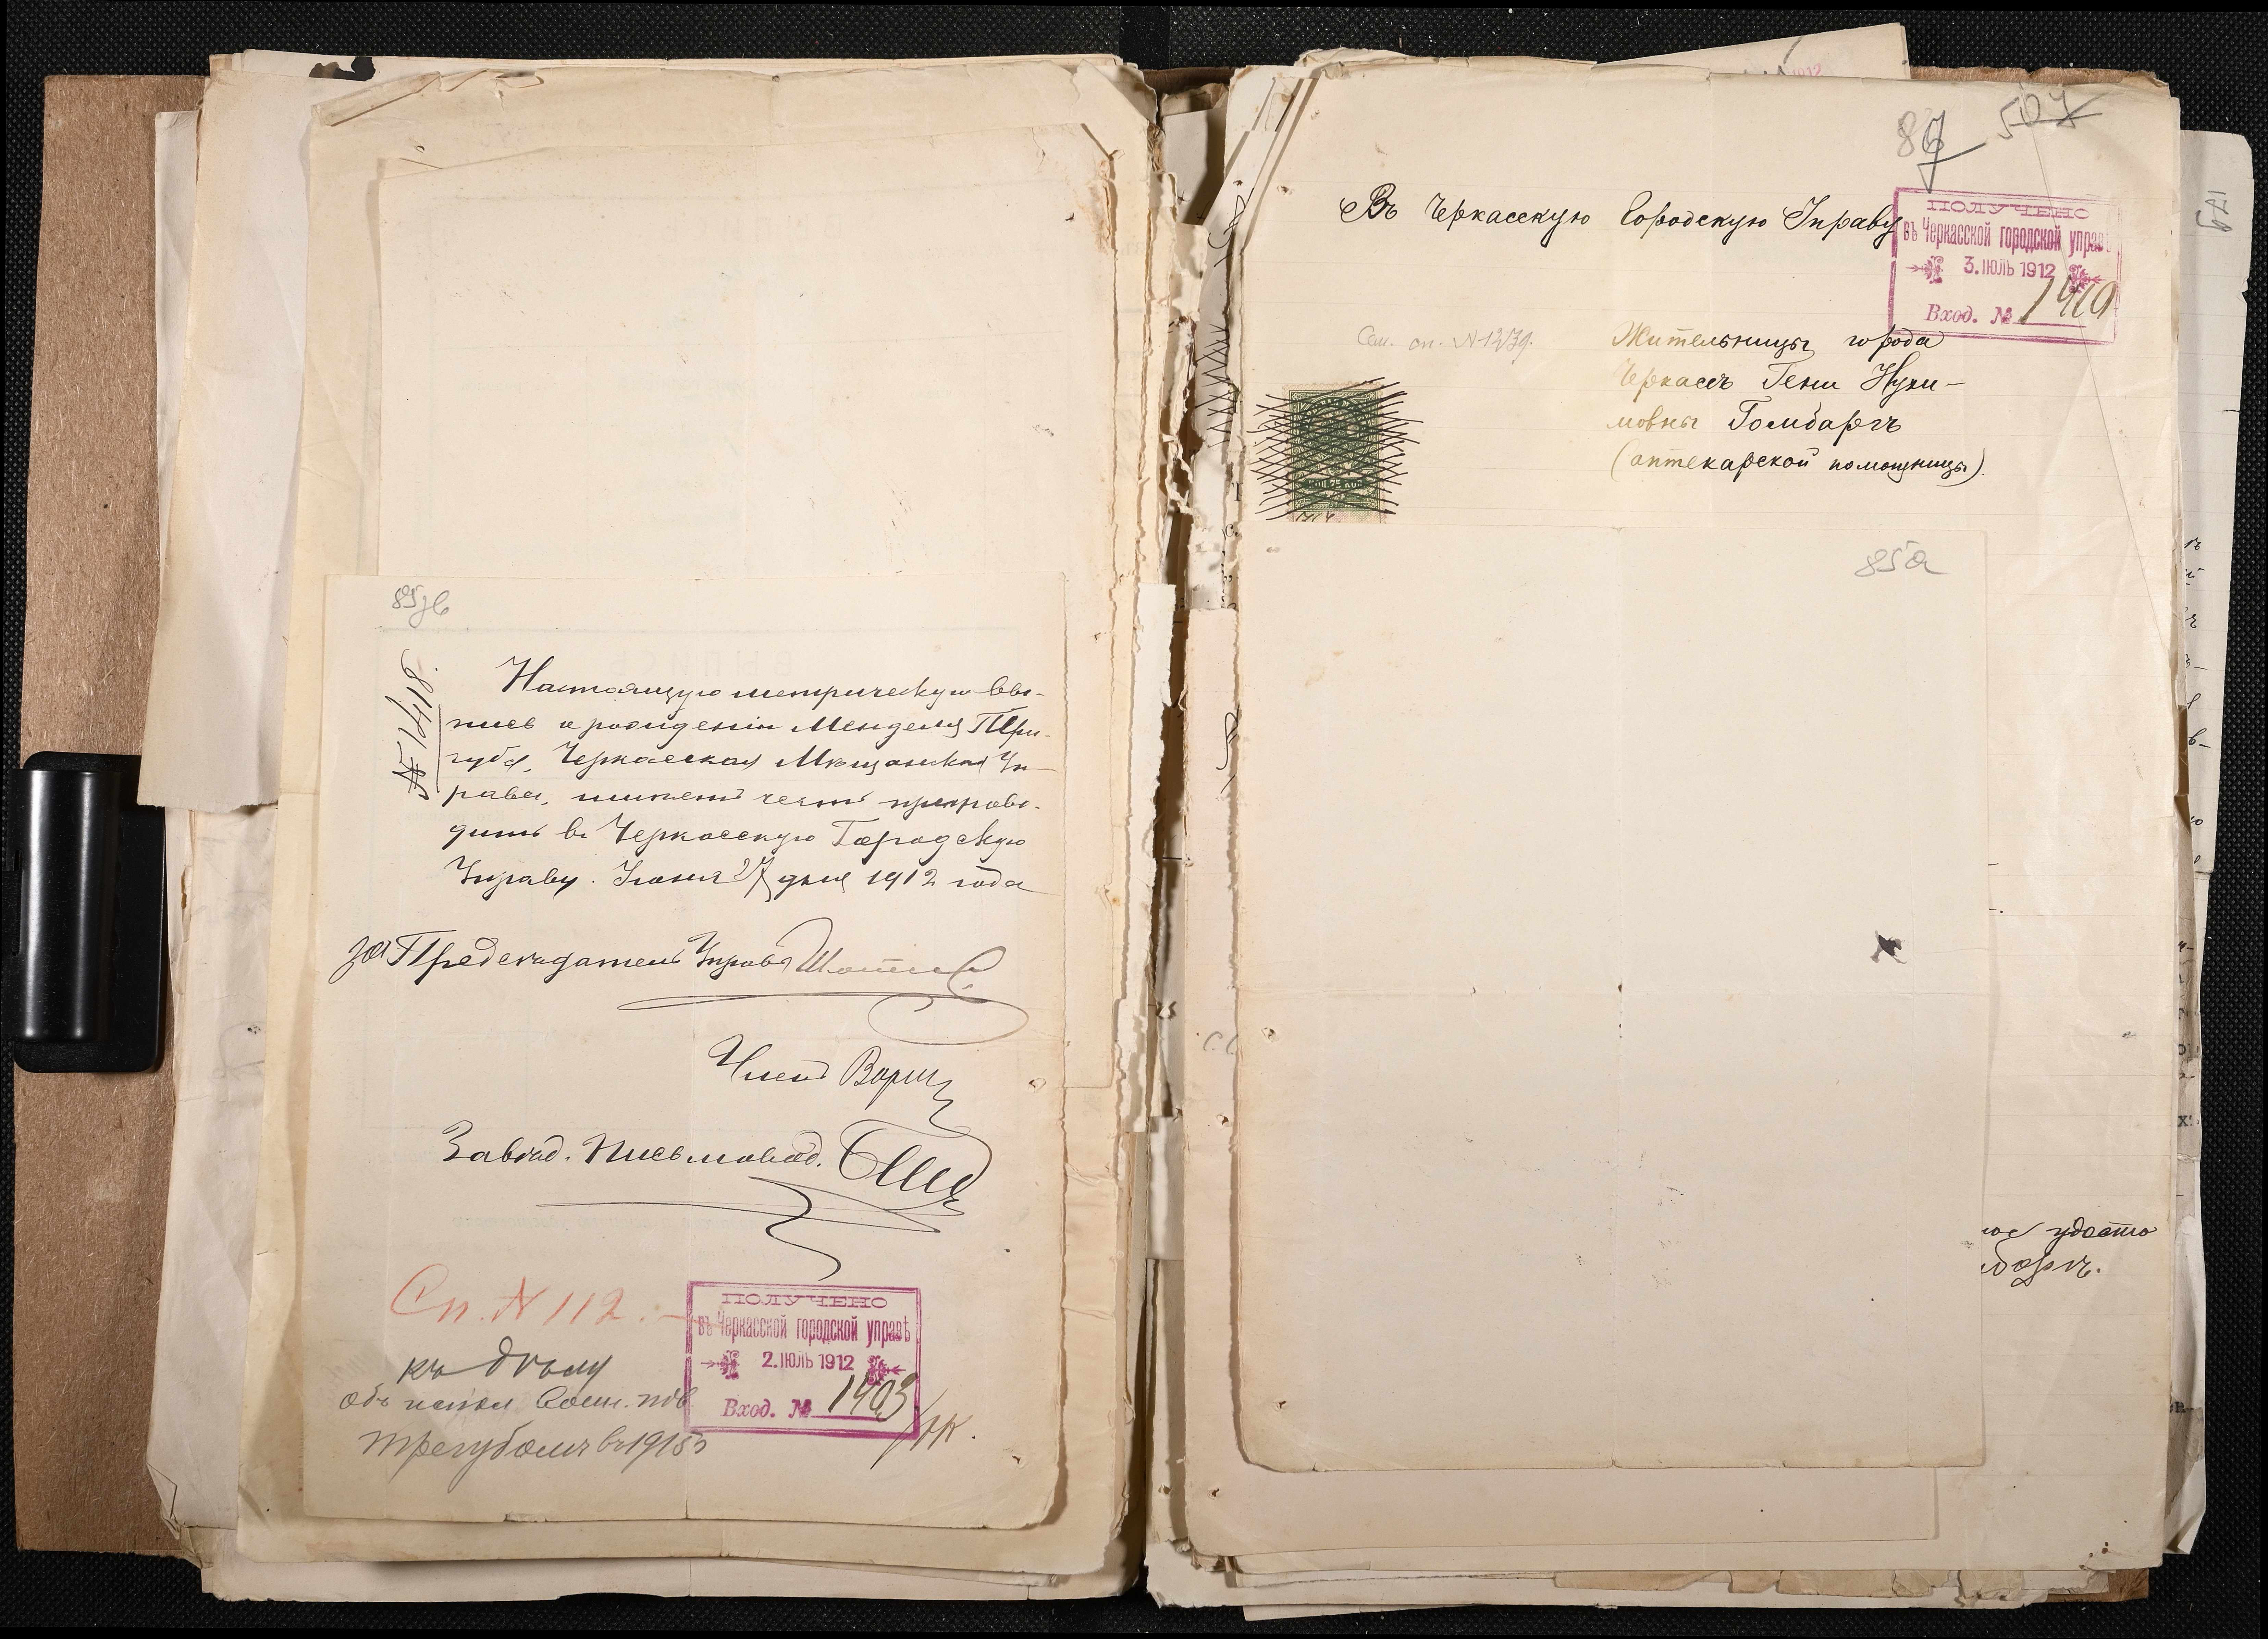 85об
№ 1418.
Настоящую метрическую вы-
пись о рождении Менделя Три-
губа, Черкасская Мещанская Уп-
рава, имеетъ честь препрово-
дить въ Черкасскую Городскую
Управу. Июня 27 дня 1912 года
за Председатель Управы
Членъ
Завѣд. Письмовод.
Сп. № 112.
къ дѣлу
объ испол воин. пов
трегубомъ въ 1915
ПОЛУЧЕНО
въ Черкасской городской управѣ
2. ІЮЛЬ 1912
Вход. № 1403
507
Въ Черкасскую Городскую Управу
ПОЛУЧЕНО
въ Черкасской городской управ
3. ІЮЛЬ 1912
Вход. № 1410
Сем. сп. № 1239.
Жительницы города
Черкассъ Гени Нухи-
мовны Гомбаргъ
(аптекарской помощницы).
КОП. 75 КОП.
85а
удосто
баргъ.